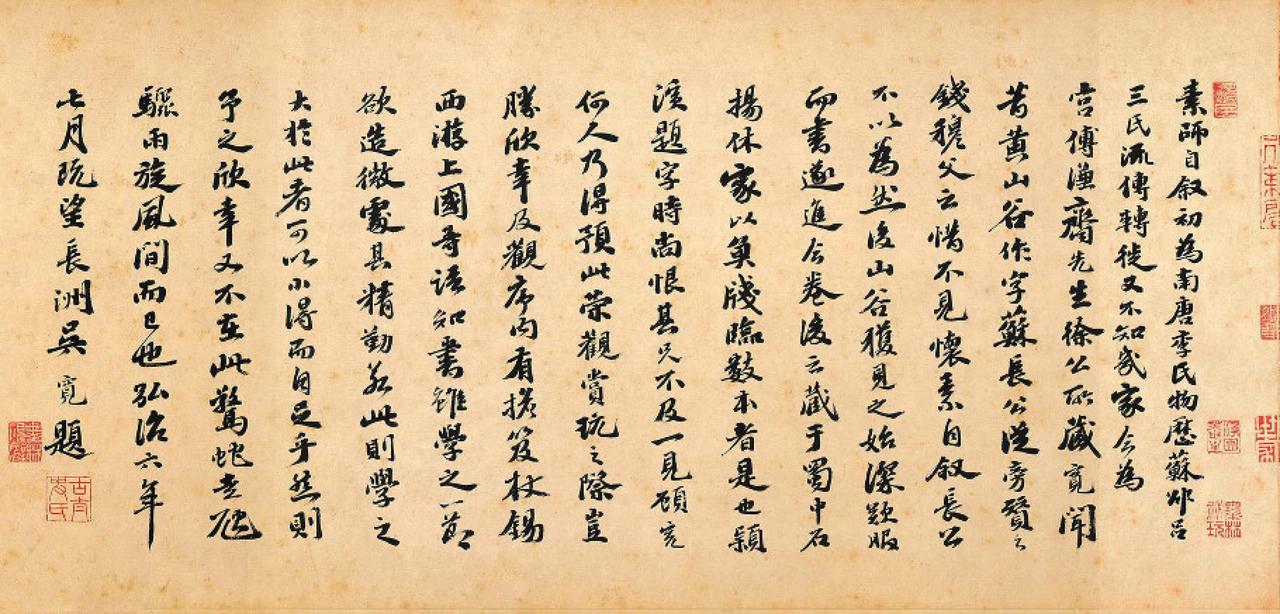 素師自叙初為南唐李氏物歷蘇邵呂
三氏流傳轉徙又不知幾家今為
宫傅謙齋先生徐公所藏寬聞
昔黄山谷作字蘇長公從旁贊之
錢穆父云惜不見懷素自叙長公
不以為然後山谷獲見之始深歎服
而書遂進今卷後云藏于蜀中石
揚休家以牋臨數本者是也潁
濱題字時尚恨其兄不及一見顧寬
何人乃得預此榮觀賞玩之際豈
勝欣幸及觀序内有擔笈杖錫
西游上國等語知書雖學之一節
欲造微處其精勤若此則學之
大於此者可以小得而自足乎然則
予之欣幸又不在此驚蛇走虺
驟雨旋風間而已也弘治六年
七月既望長洲吳寬題